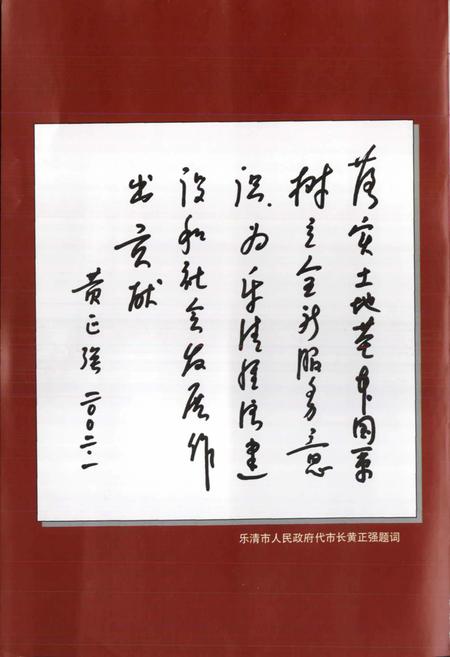 落实土地基本国策
树立全新服务意
识,为乐清经济建
设和社会发展作
出贡献
黄正强 二〇〇二.一
乐清市人民政府代市长黄正强题词